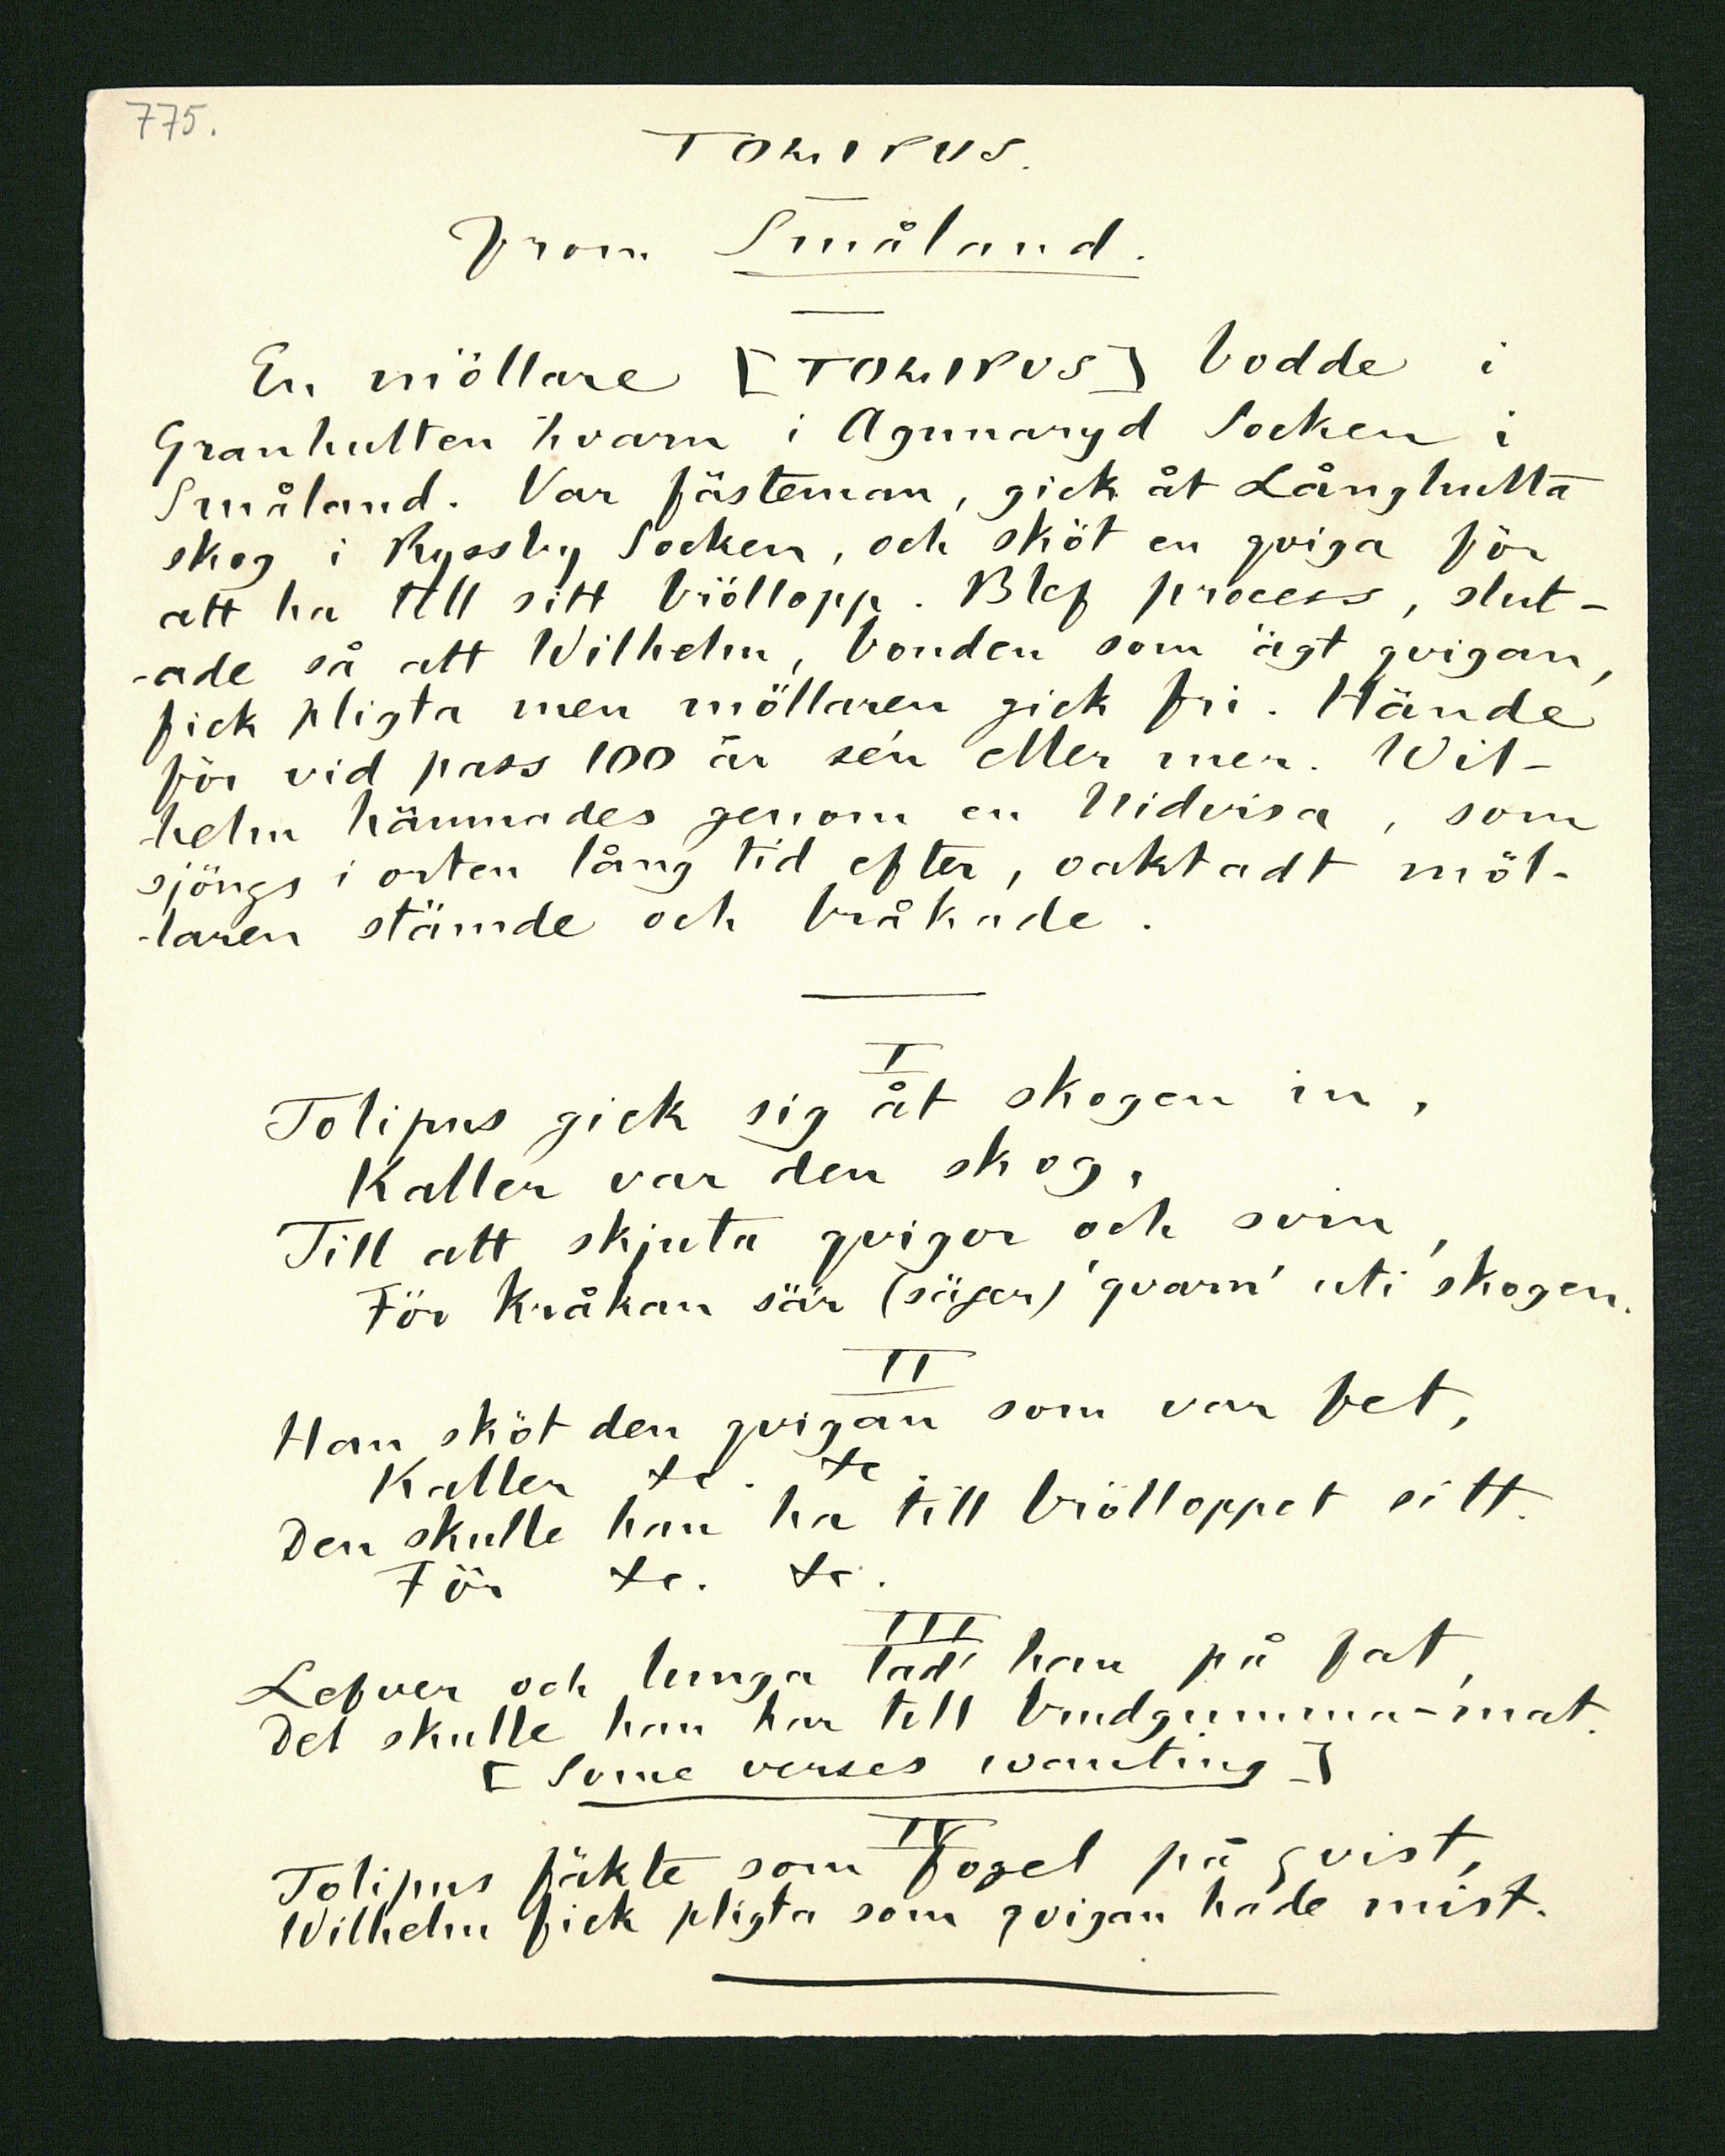 775.
TOLIPUS.
From Småland.
En möllare [TOLIPUS] bodde i
Granhulten hvarn i Agunnaryd Socken i
Småland. Var fästeman, gick åt Långhulta
skog i Ryssby Socken, och sköt en qviga för
att ha till sitt bröllopp. Blef process, slut-
-ade så att Wilhelm, bonden som ägt qvigan,
fick pligta men möllaren gick fri. Hände
för vid pass 100 år sén eller mer. Wil-
-helm hämnades genom en Nidvisa, som
sjöngs i orten lång tid efter, oaktadt möl-
-laren stämde och bråkade.
I
Tolipus gick sig åt skogen in,
Kaller var den skog,
Till att skjuta qvigor och svin,
För Kråkan sär (säger) 'qvarn' uti skogen.
II
Han sköt den qvigan som var fet,
Kaller &c. &c
Den skulle han ha till brölloppet sitt.
För &c. &c.
III
Lefver och lunga lad' han på fat,
Det skulle han har till brudgumma-mat.
[Some verses wanting]
IV
Tolipus fäkte som fogel på qvist,
Wilhelm fick pligta som qvigan hade mist.